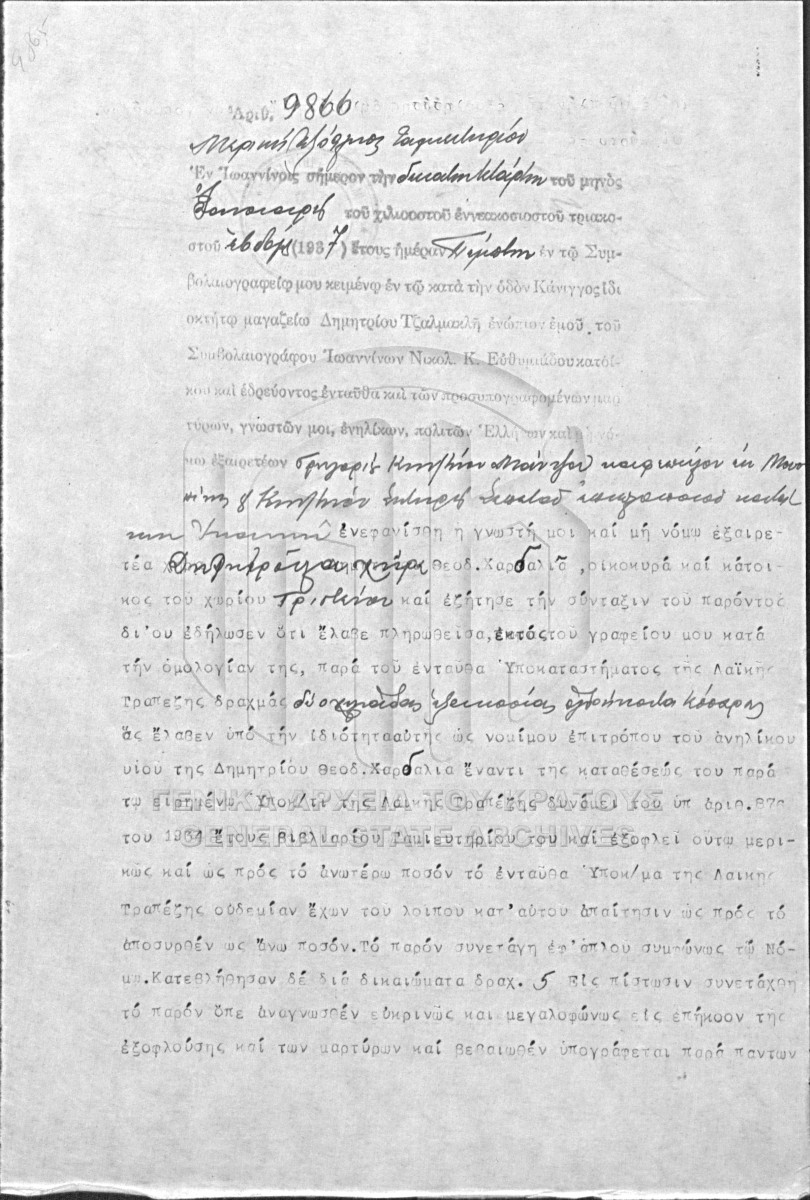 9865
Ἀριθ. 9866
Μερική ἐξόφλησις Ταμιευτηρίου
Ἐν Ἰωαννίνοις σήμερον τὴν δεκάτην τετάρτην τοῦ μηνὸς
Ἰανουαρίου τοῦ χιλιοστοῦ ἐννεακοσιοστοῦ τριακο-
στοῦ ἑβδόμ (1937) ἔτους ἡμέραν Πέμπτην ἐν τῷ Συμ-
βολαιογραφείῳ μου κειμένῳ ἐν τῷ κατὰ τὴν ὁδὸν Κάνιγγος ἰδι
οκτήτῳ μαγαζείῳ Δημητρίου Τζαλμακλῆ ἐνώπιον ἐμοῦ τοῦ
Συμβολαιογράφου Ἰωαννίνων Νικολ. Κ. Εὐθυμιάδου κατοί-
κου καὶ ἑδρεύοντος ἐνταῦθα καὶ τῶν προσυπογραφομένων μαρ
τύρων, γνωστῶν μοι, ἐνηλίκων, πολιτῶν Ἑλλήνων καὶ μὴ νό-
μῳ ἐξαιρετέων Γρηγορίου Κωνσταντίνου
ἐνεφανίσθη ἡ γνωστή μοι καί μή νόμω ἐξαιρε-
τέα Δημητρούλα χήρα Θεοδ. Χαρδαλιᾶ , οἰκοκυρά καί κάτοι-
κος τοῦ χωρίου καί ἐζήτησε τήν σύνταξιν τοῦ παρόντος
δι'οὗ ἐδήλωσεν ὅτι ἔλαβε πληρωθεῖσα, ἐκτός τοῦ γραφείου μου κατά
τήν ὁμολογίαν της, παρά τοῦ ἐνταῦθα Ὑποκαταστήματος τῆς Λαϊκῆς
Τραπέζης δραχμάς δύο χιλιάδας ἑξακοσίας ὀγδοήκοντα τέσσαρας
ἅς ἔλαβεν ὑπό τήν ἰδιότητα αὐτῆς ὡς νομίμου ἐπιτρόπου τοῦ ἀνηλίκου
υἱοῦ της Δημητρίου Θεοδ. Χαρδαλιᾶ ἔναντι τῆς καταθέσεώς του παρά
τῷ εἰρημένῳ Ὑποκ/τι τῆς Λαικῆς Τραπέζης δυνάμει τοῦ ὑπ ἀριθ.
του 1934 ἔτους Βιβλιαρίου Ταμιευτηρίου του καί ἐξοφλεῖ οὕτω μερι-
κῶς καί ὡς πρός τό ἀνωτέρω ποσόν τό ἐνταῦθα Ὑποκ/μα τῆς Λαικῆς
Τραπέζης οὐδεμίαν ἔχων τοῦ λοιποῦ κατ'αὐτοῦ ἀπαίτησιν ὡς πρός τό
ἀποσυρθέν ὡς ἄνω ποσόν. Τό παρόν συνετάγη ἐφ'ἁπλοῦ συμφώνως τῷ Νό-
μῳ. Κατεβλήθησαν δέ διά δικαιώματα δραχ. 5 Εἰς πίστωσιν συνετάχθη
τό παρόν ὅπερ ἀναγνωσθέν εὐκρινῶς καί μεγαλοφώνως εἰς ἐπήκοον τῆς
ἐξοφλούσης καί τῶν μαρτύρων καί βεβαιωθέν ὑπογράφεται παρά πάντων
ΓΕΝΙΚΑ ΑΡΧΕΙΑ ΤΟΥ ΚΡΑΤΟΥΣ
GENERAL STATE ARCHIVES